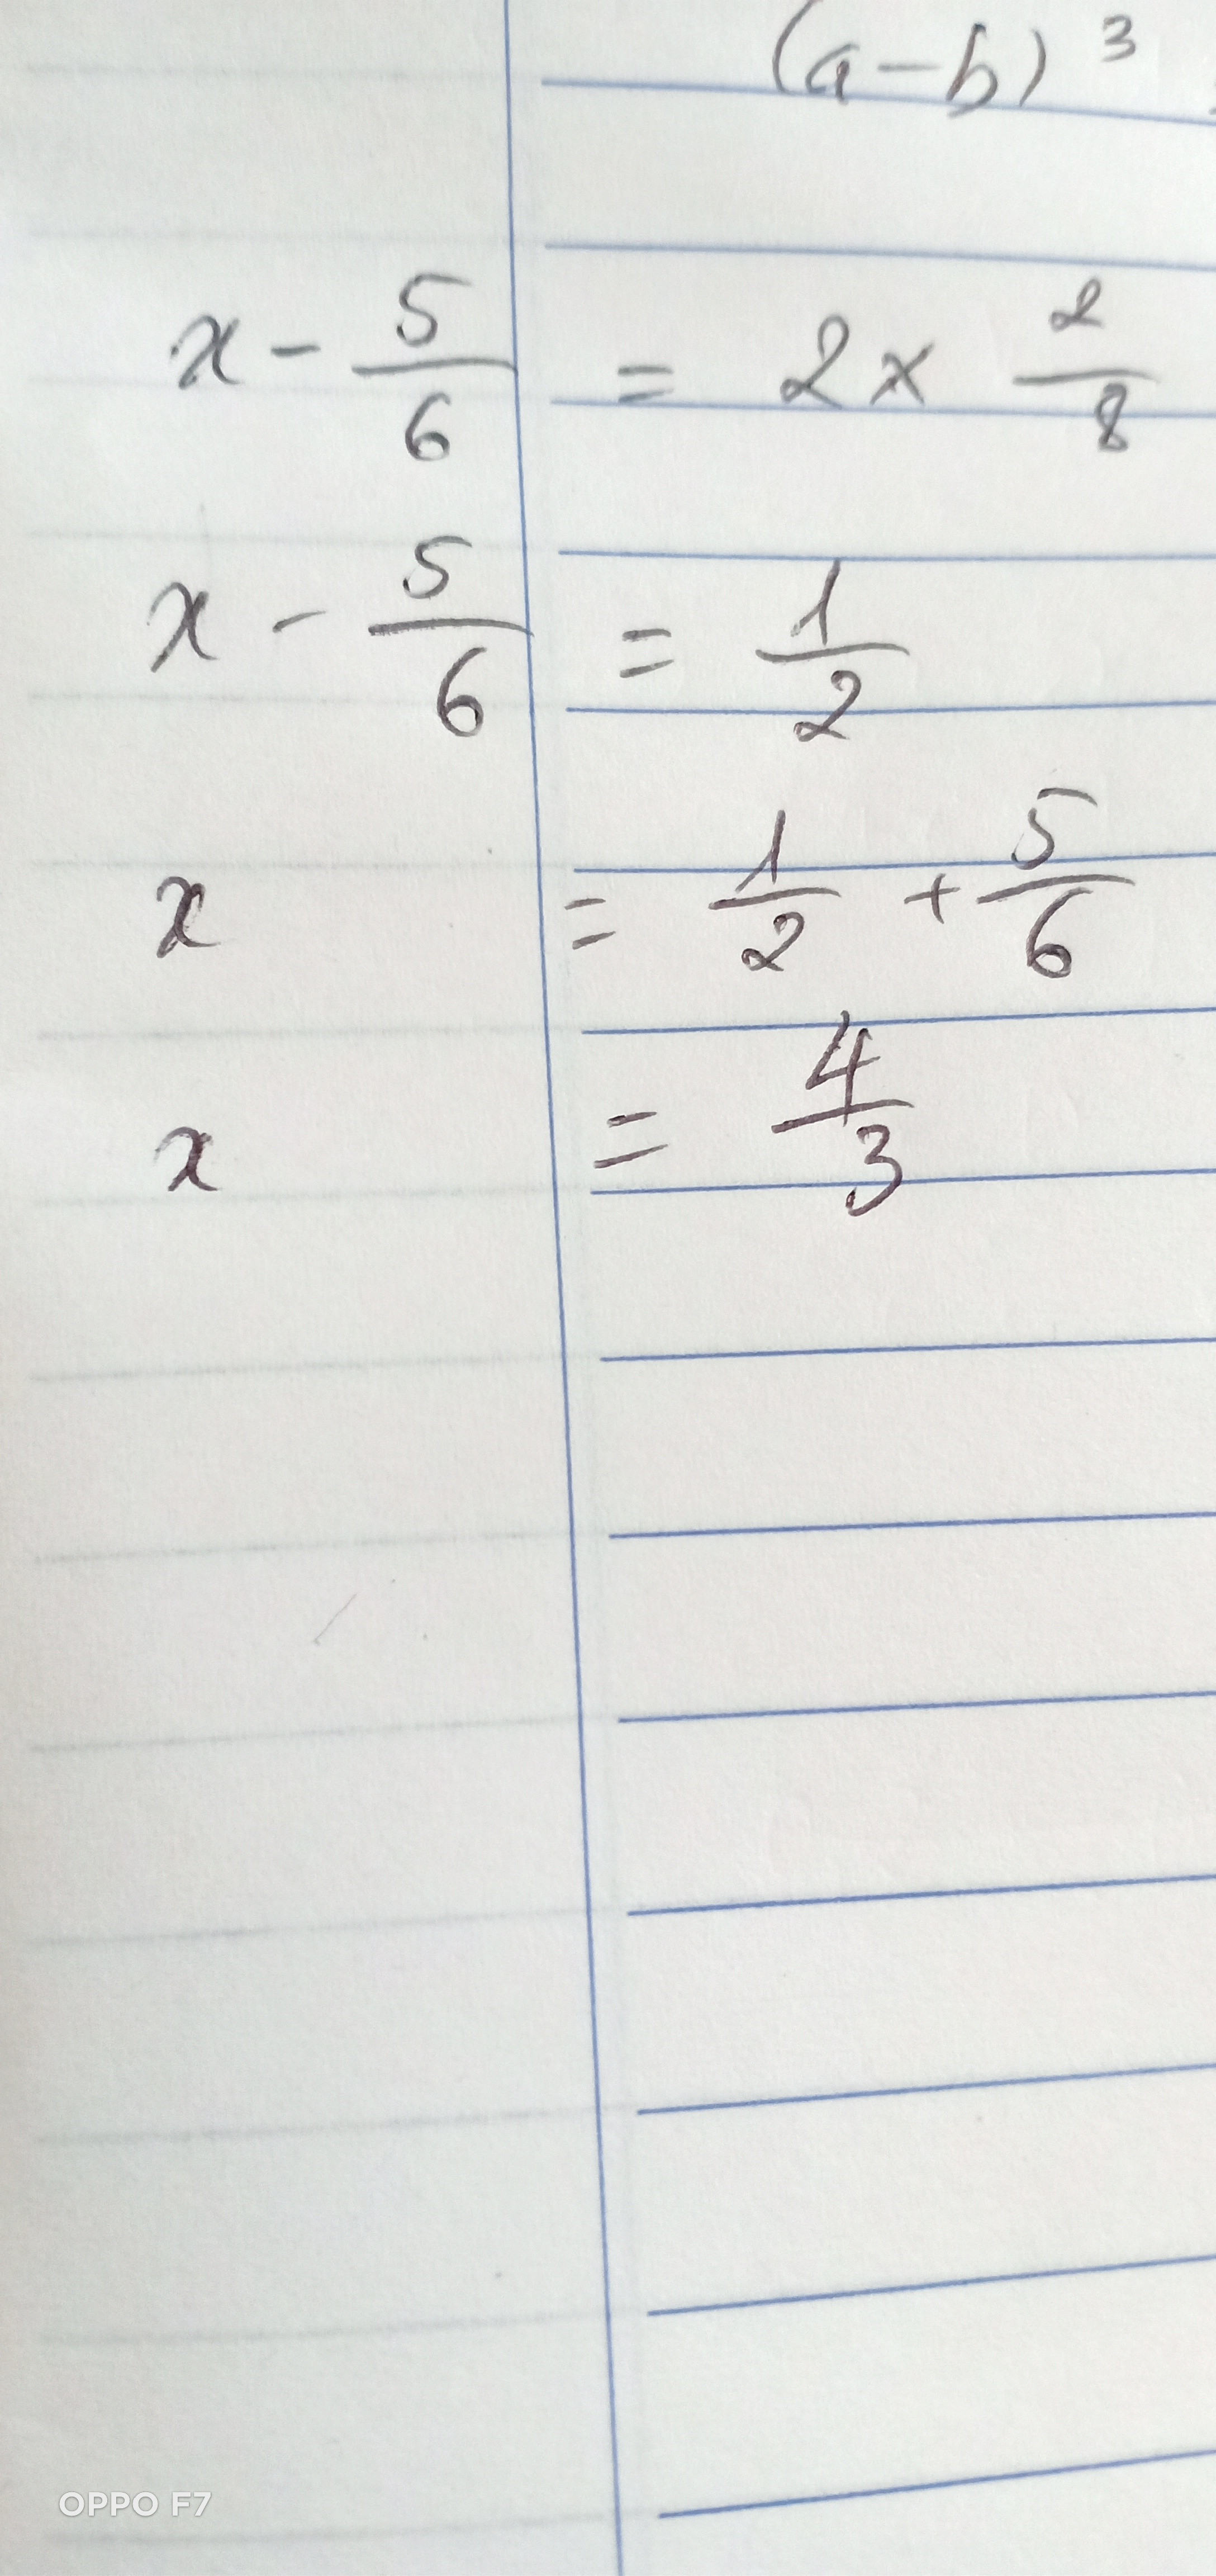 (a-b)³
x - 5/6 = 2 x 2/8
x - 5/6 = 1/2
x = 1/2 + 5/6
x = 4/3
OPPO F7